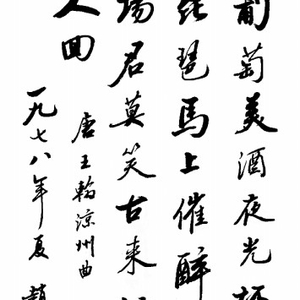 葡萄美酒夜光杯
琵琶馬上催醉
場君莫笑古来
人回
唐王翰涼州曲
一九七八年夏趙